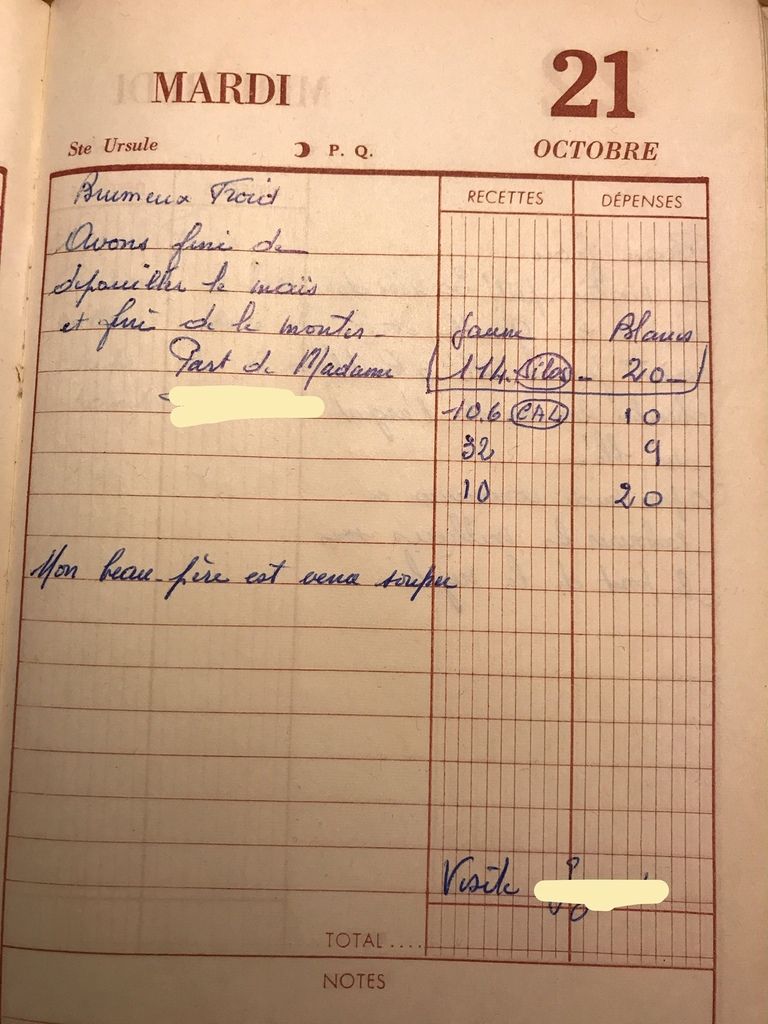 MARDI 21
Ste Ursule P. Q. OCTOBRE
RECETTES DÉPENSES
Brumeux Froid
Avons fini de
dépouiller le maïs
et fini de le monter - Jaune Blanc
Part de Madame 114. Silos - 20 -
10.6 CAL 10
32 9
10 20
Mon beau-père est venu souper
Visite
TOTAL ....
NOTES